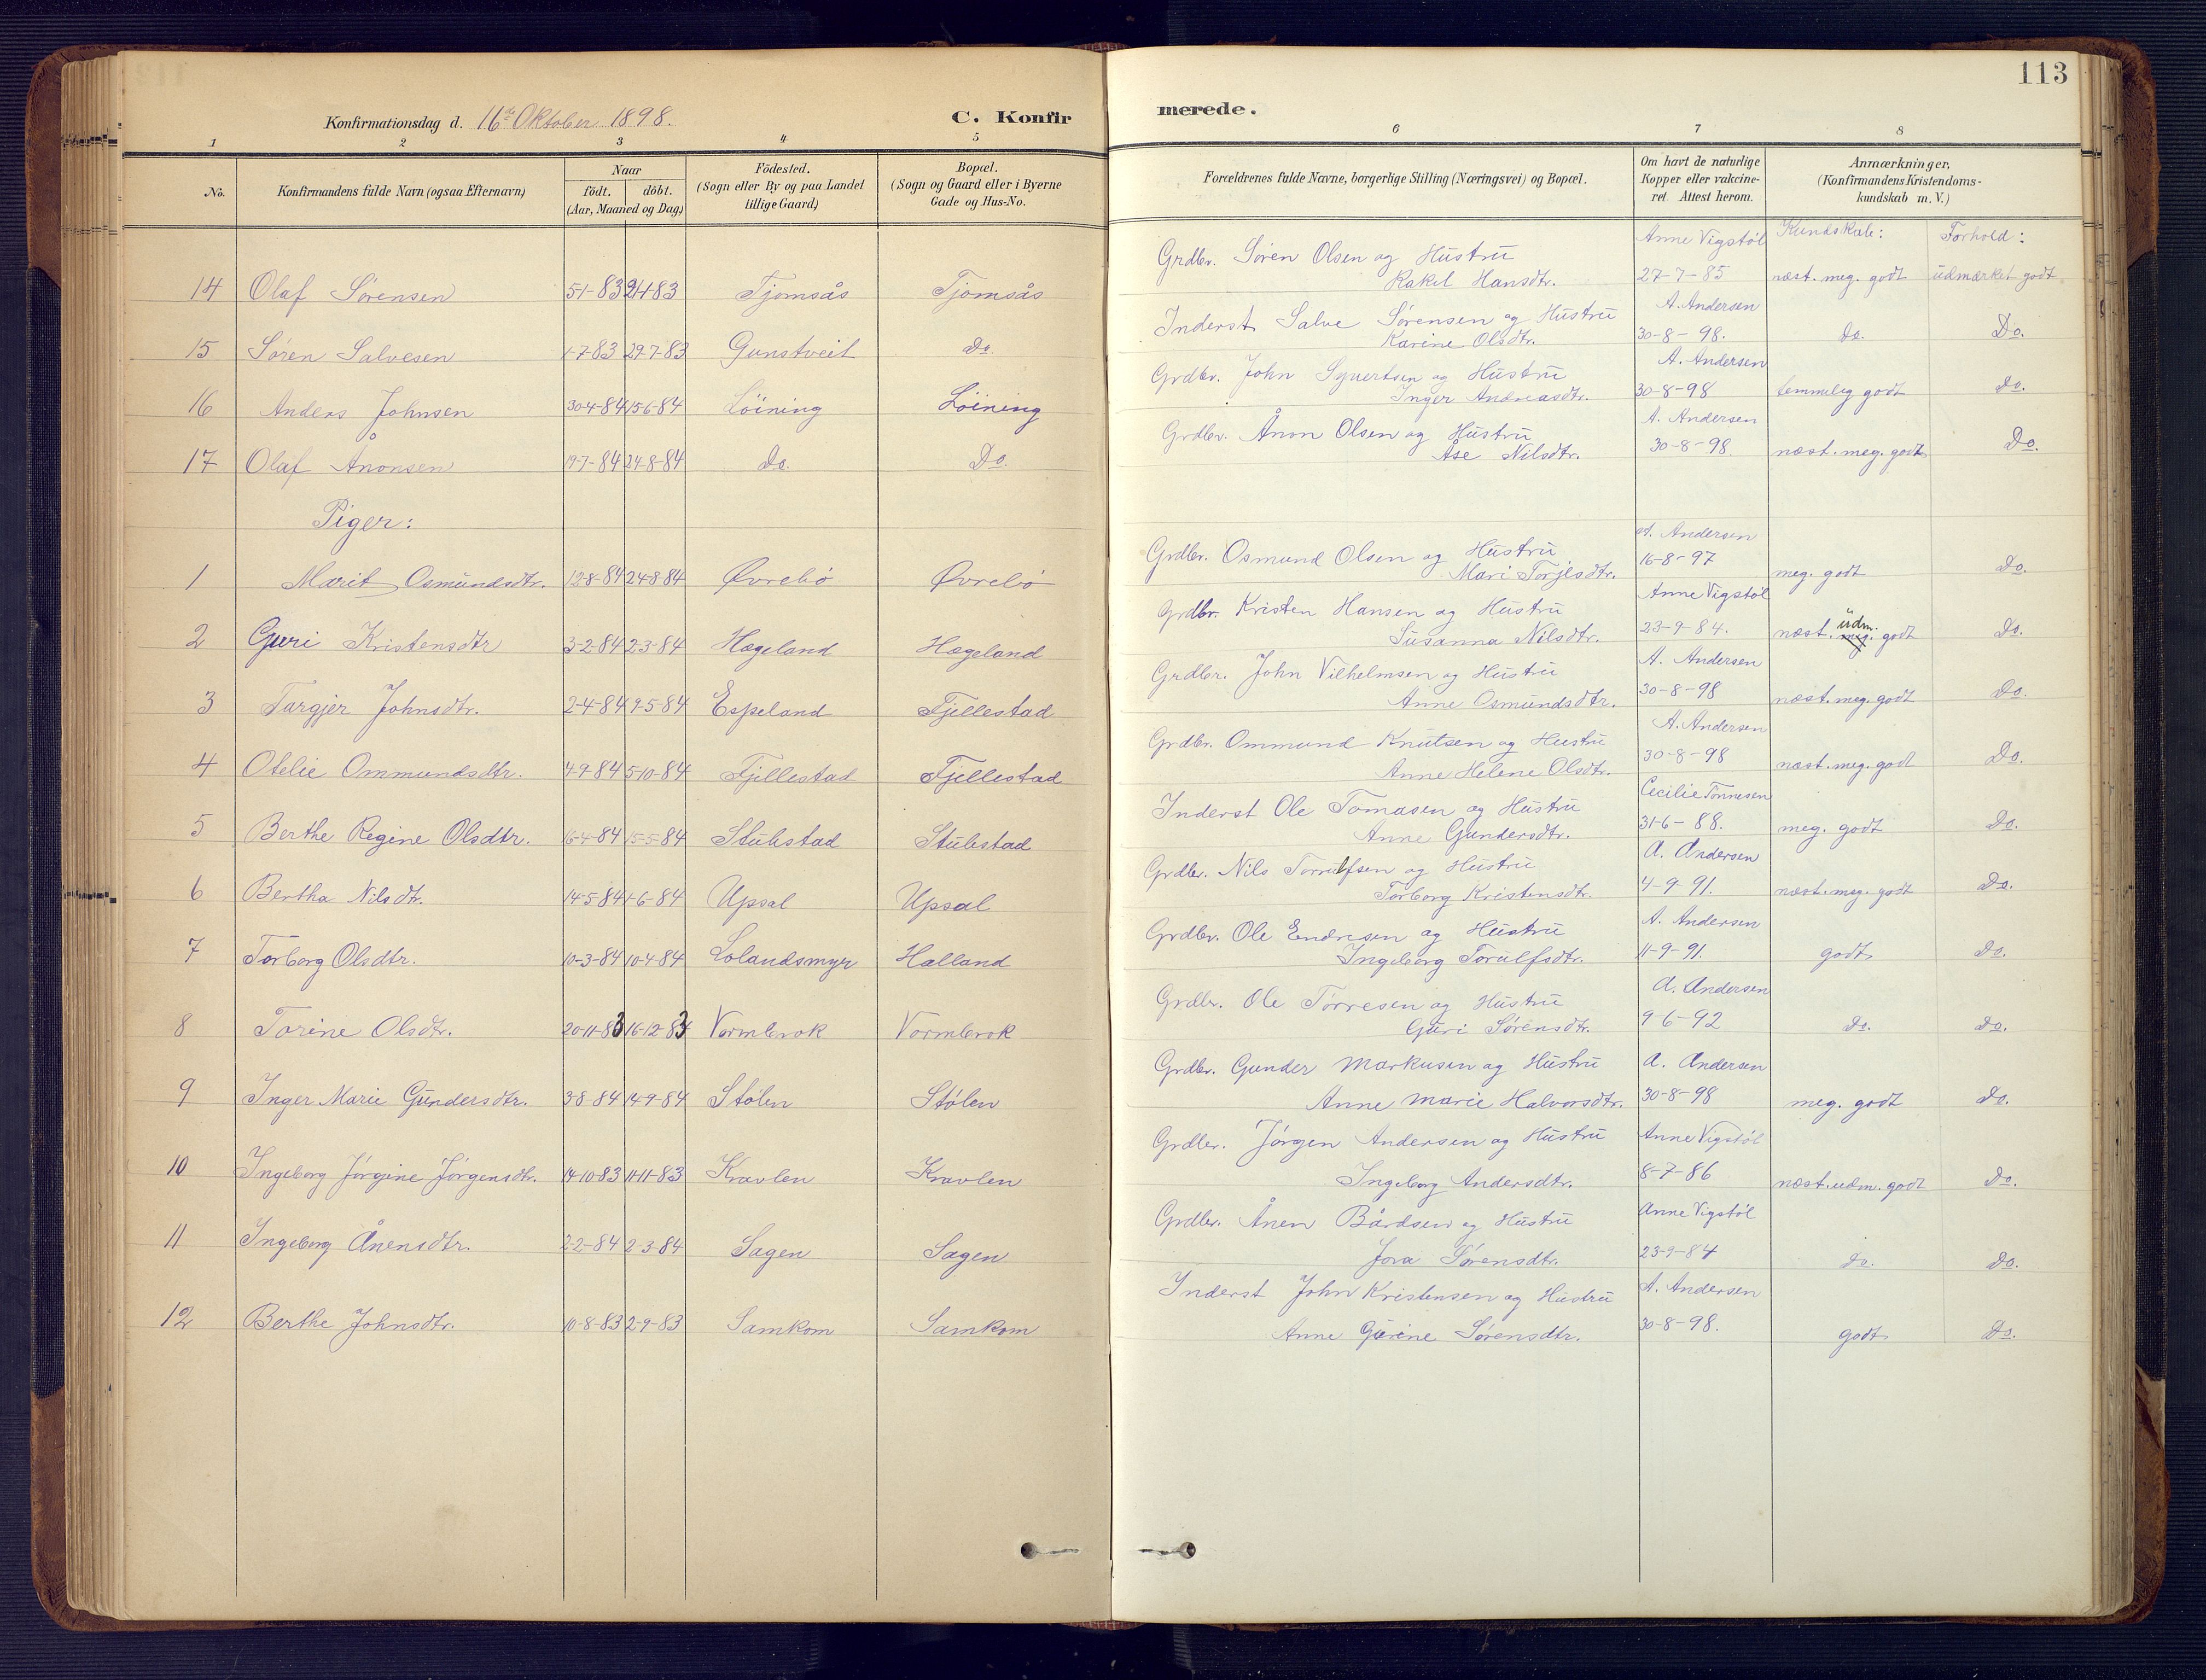 113
Konfirmationsdag d. 16de Oktober 1898.
C. Konfir
merede.
1 2 3 4 5 6 7 8
No.
Konfirmandens fulde Navn (ogsaa Efternavn)
Naar
födt. döbt.
(Aar, Maaned og Dag)
Födested.
(Sogn eller By og paa Landet
tillige Gaard)
Bopæl.
(Sogn og Gaard eller i Byerne
Gade og Hus-No.
Forældrenes fulde Navne, borgerlige Stilling (Næringsvei) og Bopæl.
Om havt de naturlige
Kopper eller vakcine-
ret. Attest herom.
Anmærkninger.
(Konfirmandens Kristendoms-
kundskab m. V.)
Kundskab: Forhold:
Grdbr. Søren Olsen og Hustru Anne Vigstøl
14 Olaf Sørensen 5-1-83 21-1-83 Tjomsås Tjomsås Rakel Hansdtr. 27-7-85 næst. meg. godt udmærket godt
Inderst Salve Sørensen og Hustru A. Andersen
15 Søren Salvesen 1-7-83 29-7-83 Gunstveit Do. Karine Olsdtr. 30-8-98. Do. Do.
Grdbr. John Syvertsen og Hustru A. Andersen
16 Anders Johnsen 30-4-84 15-6-84 Löining Löining Inger Andreasdtr. 30-8-98 temmelig godt Do.
Grdbr. Ånon Olsen og Hustru A. Andersen
17 Olaf Ånonsen 19-7-84 24-8-84 Do. Do. Åse Nilsdtr. 30-8-98. næst. meg. godt Do.
Piger:
Grdbr. Osmund Olsen og Hustru A. Andersen
1 Marit Osmundsdtr. 12-8-84 24-8-84 Øvrebö Øvrebö Mari Torjesdtr. 16-8-97 meg. godt Do.
Grdbr. Kristen Hansen og Hustru Anne Vigstøl
2 Guri Kristensdtr 3-2-84 2-3-84 Hægeland Hægeland Susanna Nilsdtr. 23-9-84. næst. meg. udm. godt Do.
Grdbr. John Vilhelmsen og Hustru A. Andersen
3 Targjer Johnsdtr. 2-4-84 9-5-84 Espeland Fjellestad Anne Osmundsdtr. 30-8-98 næst. meg. godt Do.
Grdbr. Ommund Knutsen og Hustru A. Andersen
4 Otelie Ommundsdtr. 4-9-84 5-10-84 Fjellestad Fjellestad Anne Helene Olsdtr. 30-8-98 næst. meg. godt Do.
Inderst Ole Tomasen og Hustru Cecilie Tønnesen
5 Berthe Regine Olsdtr. 16-4-84 15-5-84 Stubstad Stubstad Anne Gundersdtr. 31-6-88. meg. godt Do.
Grdbr. Nils Torrulfsen og Hustru A. Andersen
6 Bertha Nilsdtr. 14-5-84 1-6-84 Upsal Upsal Torborg Kristensdtr. 4-9-91. næst. meg. godt Do.
Grdbr. Ole Endresen og Hustru A. Andersen
7 Torborg Olsdtr. 10-3-84 10-4-84 Lolandsmyr Halland Ingeborg Torulfsdtr. 11-9-91. godt Do.
Grdbr. Ole Tørresen og Hustru A. Andersen
8 Torine Olsdtr. 20-11-83 16-12-83 Vormbrok Vormbrok Guri Sørensdtr. 9-6-92 Do. Do.
Grdbr. Gunder Markusen og Hustru A. Andersen
9 Inger Marie Gundersdtr. 3-8-84 14-9-84 Stølen Stølen Anne Marie Halvorsdtr. 30-8-98 meg. godt Do.
Grdbr. Jørgen Andersen og Hustru Anne Vigstøl
10 Ingeborg Jørgine Jørgensdtr. 14-10-83 11-11-83 Kravlen Kravlen Ingeborg Andersdtr. 8-7-86 næst. udm. godt Do.
Grdbr. Ånen Bårdsen og Hustru Anne Vigstøl
11 Ingeborg Ånensdtr. 2-2-84 2-3-84 Sagen Sagen Jora Sørensdtr. 23-9-84 Do. Do.
Inderst John Kristensen og Hustru A. Andersen
12 Berthe Johnsdtr. 10-8-83 2-9-83 Samkom Samkom Anne Gurine Sørensdtr. 30-8-98. godt Do.